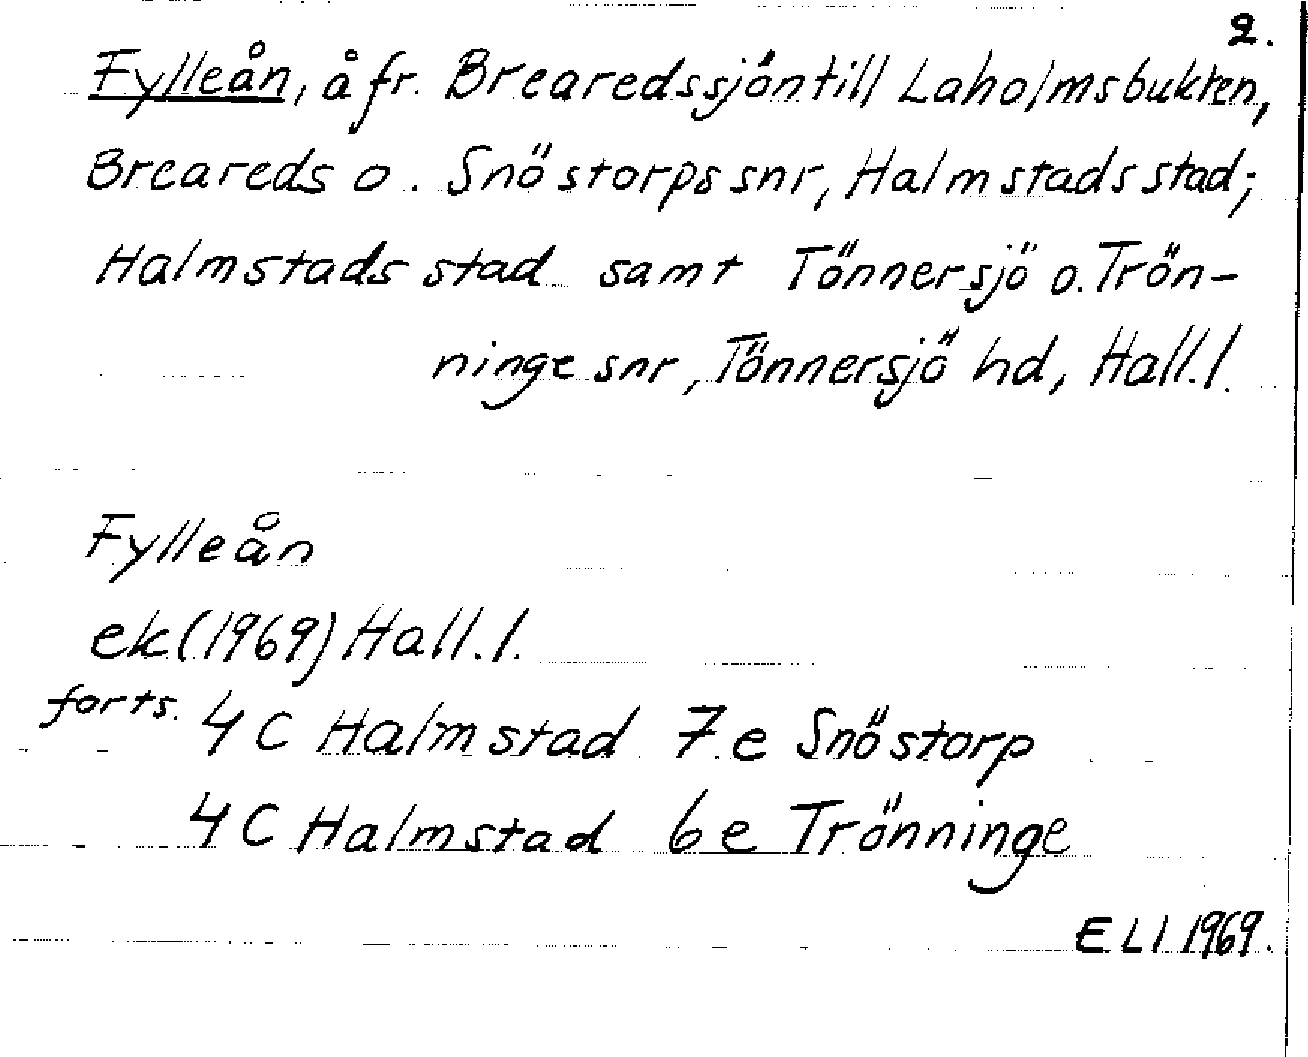 2.
Fylleån, å fr. Brearedssjön till Laholmsbukten,
Breareds o. Snöstorps snr, Halmstads stad;
Halmstads stad samt Tönnersjö o. Trön-
ninge snr, Tönnersjö hd, Hall. l.
Fylleån
ek (1969) Hall. l.
forts. 4 C Halmstad 7 e Snöstorp
4 C Halmstad 6 e Trönninge
ELl 1969.